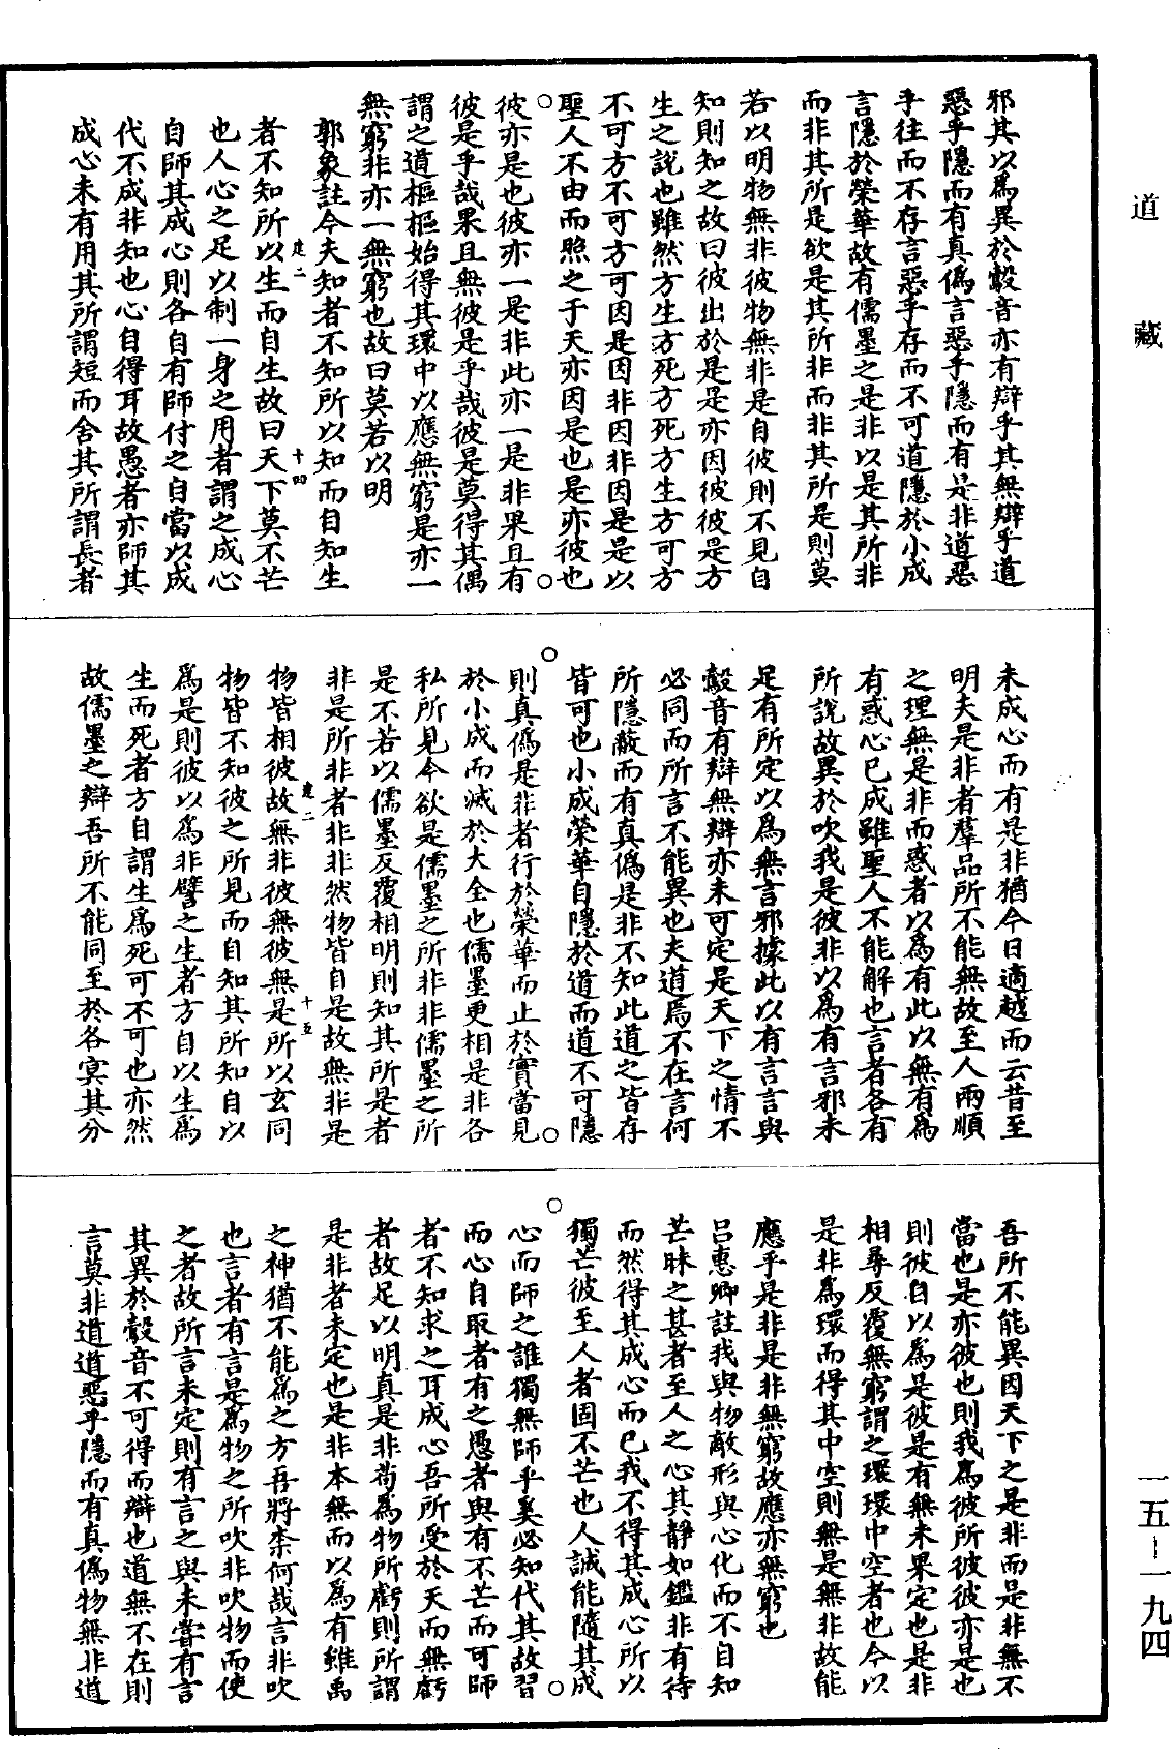 道藏
邪其以為異於鷇音亦有辯乎其無辯乎道
惡乎隱而有真偽言惡乎隱而有是非道惡
乎往而不存言惡乎存而不可道隱於小成
言隱於榮華故有儒墨之是非以是其所非
而非其所是欲是其所非而非其所是則莫
若以明物無非彼物無非是自彼則不見自
知則知之故曰彼出於是是亦因彼彼是方
生之說也雖然方生方死方死方生方可方
不可方不可方可因是因非因非因是是以
聖人不由而照之于天亦因是也是亦彼也
彼亦是也彼亦一是非此亦一是非果且有
彼是乎哉果且無彼是乎哉彼是莫得其偶
謂之道樞樞始得其環中以應無窮是亦一
無窮非亦一無窮也故曰莫若以明
郭象註今夫知者不知所以知而自知生
者不知所以生而自生故曰天下莫不芒
建二 十四
也人心之足以制一身之用者謂之成心
自師其成心則各自有師付之自當以成
代不成非知也心自得耳故愚者亦師其
成心未有用其所謂短而舍其所謂長者
未成心而有是非猶今日適越而云昔至
明夫是非者羣品所不能無故至人兩順
之理無是非而惑者以為有此以無有為
有惑心已成雖聖人不能解也言者各有
所說故異於吹我是彼非以為有言邪未
足有所定以為無言邪據此以有言言與
鷇音有辯無辯亦未可定是天下之情不
必同而所言不能異也夫道焉不在言何
所隱蔽而有真偽是非不知此道之皆存
皆可也小成榮華自隱於道而道不可隱
則真偽是非者行於榮華而止於實當見
於小成而滅於大全也儒墨更相是非各
私所見今欲是儒墨之所非非儒墨之所
是不若以儒墨反覆相明則知其所是者
非是所非者非非然物皆自是故無非是
物皆相彼故無非彼無彼無是所以玄同
建二 十五
物皆不知彼之所見而自知其所知自以
為是則彼以為非譬之生者方自以生為
生而死者方自謂生為死可不可也亦然
故儒墨之辯吾所不能同至於各冥其分
吾所不能異因天下之是非而是非無不
當也是亦彼也則我為彼所彼彼亦是也
則彼自以為是彼是有無未果定也是非
相尋反覆無窮謂之環環中空者也今以
是非為環而得其中空則無是無非故能
應乎是非是非無窮故應亦無窮也
呂惠卿註我與物敵形與心化而不自知
芒昧之甚者至人之心其靜如鑑非有待
而然得其成心而已我不得其成心所以
獨芒彼至人者固不芒也人誠能隨其成
心而師之誰獨無師乎奚必知代其故習
而心自取者有之愚者與有不芒而可師
者不知求之耳成心吾所受於天而無虧
者故足以明真是非苟為物所虧則所謂
是非者未定也是非本無而以為有雖禹
之神猶不能為之方吾將柰何哉言非吹
也言者有言是為物之所吹非吹物而使
之者故所言未定則有言之與未嘗有言
其異於鷇音不可得而辯也道無不在則
言莫非道道惡乎隱而有真偽物無非道
一五-一九四